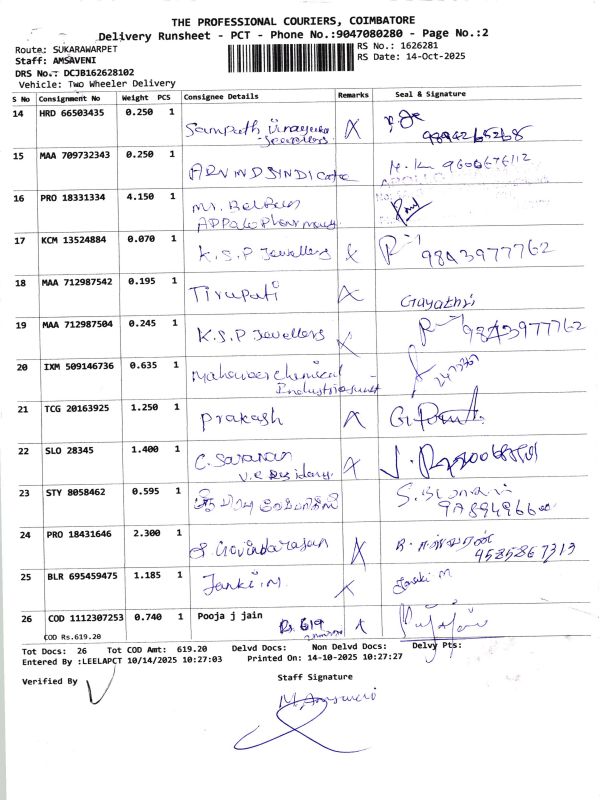 THE PROFESSIONAL COURIERS, COIMBATORE
Delivery Runsheet - PCT - Phone No.:9047080280 - Page No.:2
Route: SUKARAWARPET
RS No.: 1626281
Staff: AMSAVENI
RS Date: 14-Oct-2025
DRS No.: DCJB162628102
Vehicle: Two Wheeler Delivery
S No Consignment No Weight PCS Consignee Details Remarks Seal & Signature
14 HRD 66503435 0.250 1 Sampath Vinayaka
Jewellers
15 MAA 709732343 0.250 1 ARVIND SINDICate 9600676112
16 PRO 18331334 4.150 1 Mr.
Appalo pharmacy
17 KCM 13524884 0.070 1 K.S.P Jewellers 9843977762
18 MAA 712987542 0.195 1 Tirupati Gayathri
19 MAA 712987504 0.245 1 K.S.P Jewellers 9843977762
20 IXM 509146736 0.635 1 Mahaveer chemical
21 TCG 20163925 1.250 1 prakash
22 SLO 28345 1.400 1 C. Saravanan
23 STY 8058462 0.595 1
24 PRO 18431646 2.300 1 S. Govindarajan
25 BLR 695459475 1.185 1 Janki.M Janki M
26 COD 1112307253 0.740 1 Pooja j jain Rs. 619
COD Rs.619.20
Tot Docs: 26 Tot COD Amt: 619.20 Delvd Docs: Non Delvd Docs: Delvy Pts:
Entered By :LEELAPCT 10/14/2025 10:27:03 Printed On: 14-10-2025 10:27:27
Verified By
Staff Signature